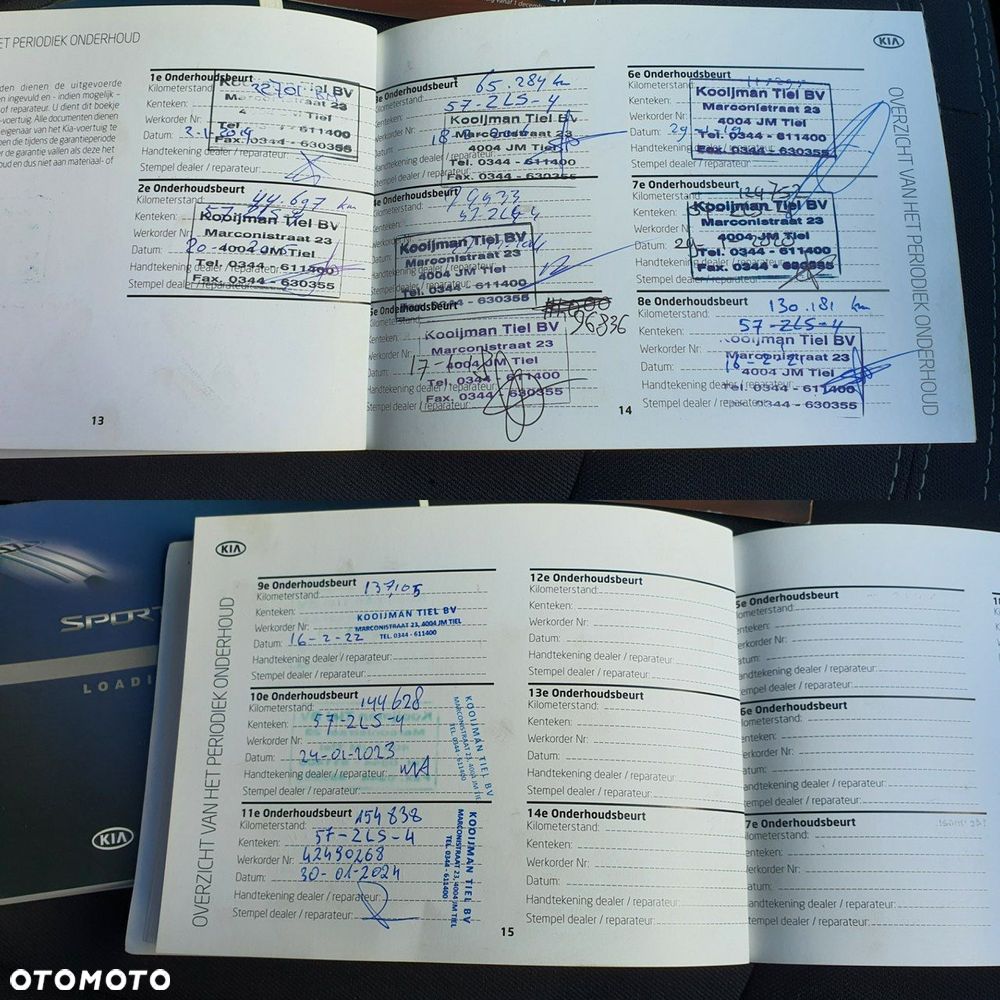 ET PERIODIEK ONDERHOUD
den dienen de uitgevoerde
en ingevuld en - indien mogelijk -
of reparateur. U dient dit boekje
-voertuig. Alle documenten dienen
eigenaar van het Kia-voertuig te
ben de tijdens de garantieperiode
er de garantie vallen als deze het
oud en dus niet aan materiaal- of
1e Onderhoudsbeurt
Kilometerstand:
Kenteken:
Marconistraat 23
Werkorder Nr
4004 JM Tiel
Datum:
Tel. 0344 - 611400
Fax. 0344 - 630355
Handtekening dealer / reparateur:
Stempel dealer / reparateur:
2e Onderhoudsbeurt
Kilometerstand: 44.697 km
Kenteken:
Kooijman Tiel BV
Werkorder Nr
Marconistraat 23
Datum:
4004 JM Tiel
Handtekening dealer / reparateur:
Tel. 0344 - 611400
Stempel dealer / reparateur:
Fax. 0344 - 630355
13
KIA
3e Onderhoudsbeurt
65.284 km
Kilometerstand:
57-ZLS-4
Kenteken:
Kooijman Tiel BV
Werkorder Nr
Marconistraat 23
Datum:
4004 JM Tiel
Handtekening dealer / reparateur:
Tel. 0344 - 611400
Stempel dealer / reparateur:
Fax. 0344 - 630355
4e Onderhoudsbeurt
Kilometerstand:
Kenteken:
Kooijman Tiel BV
Werkorder Nr
Marconistraat 23
Datum:
4004 JM Tiel
Handtekening dealer / reparateur:
Tel. 0344 - 611400
Stempel dealer / reparateur:
Fax. 0344 - 630355
5e Onderhoudsbeurt
96836
Kilometerstand:
Kooijman Tiel BV
Kenteken:
Marconistraat 23
Werkorder Nr
4004 JM Tiel
Datum:
Tel. 0344 - 611400
Handtekening dealer / reparateur:
Fax. 0344 - 630355
Stempel dealer / reparateur:
14
6e Onderhoudsbeurt
Kilometerstand:
Kooijman Tiel BV
Kenteken:
Marconistraat 23
Werkorder Nr:
4004 JM Tiel
Datum:
Tel. 0344 - 611400
Handtekening dealer / reparateur:
Fax. 0344 - 630355
Stempel dealer / reparateur:
7e Onderhoudsbeurt
Kilometerstand: 124752
Kenteken:
Kooijman Tiel BV
Werkorder Nr:
Marconistraat 23
Datum:
4004 JM Tiel
Handtekening dealer / reparateur:
Tel. 0344 - 611400
Stempel dealer / reparateur:
Fax. 0344 - 630355
8e Onderhoudsbeurt
Kilometerstand: 130.181 km
Kenteken: 57-ZLS-4
Kooijman Tiel BV
Werkorder Nr:
Marconistraat 23
Datum: 16-2-21
4004 JM Tiel
Handtekening dealer / reparateur:
Tel. 0344 - 611400
Stempel dealer / reparateur:
Fax. 0344 - 630355
OVERZICHT VAN HET PERIODIEK ONDERHOUD
SPORT
LOADI
KIA
KIA
OVERZICHT VAN HET PERIODIEK ONDERHOUD
9e Onderhoudsbeurt
Kilometerstand: 137,105
Kenteken:
KOOIJMAN TIEL BV
Werkorder Nr:
MARCONISTRAAT 23, 4004 JM TIEL
Datum: 16-2-22
TEL. 0344 - 611400
Handtekening dealer / reparateur:
Stempel dealer / reparateur:
10e Onderhoudsbeurt
Kilometerstand: 144628
Kenteken: 57-ZLS-4
Werkorder Nr:
Datum: 24-01-2023
Handtekening dealer / reparateur:
Stempel dealer / reparateur:
KOOIJMAN TIEL BV
MARCONISTRAAT 23, 4004 JM TIEL
TEL. 0344 - 611400
11e Onderhoudsbeurt
Kilometerstand: 154838
Kenteken: 57-ZLS-4
Werkorder Nr: 42490268
Datum: 30-01-2024
Handtekening dealer / reparateur:
Stempel dealer / reparateur:
KOOIJMAN TIEL BV
MARCONISTRAAT 23, 4004 JM TIEL
TEL. 0344 - 611400
15
12e Onderhoudsbeurt
Kilometerstand:
Kenteken:
Werkorder Nr:
Datum:
Handtekening dealer / reparateur:
Stempel dealer / reparateur:
13e Onderhoudsbeurt
Kilometerstand:
Kenteken:
Werkorder Nr:
Datum:
Handtekening dealer / reparateur:
Stempel dealer / reparateur:
14e Onderhoudsbeurt
Kilometerstand:
Kenteken:
Werkorder Nr:
Datum:
Handtekening dealer / reparateur:
Stempel dealer / reparateur:
5e Onderhoudsbeurt
ilometerstand:
enteken:
erkorder Nr:
atum:
andtekening dealer / reparateur:
empel dealer / reparateur:
6e Onderhoudsbeurt
ilometerstand:
enteken:
erkorder Nr:
atum:
andtekening dealer / reparateur:
tempel dealer / reparateur:
7e Onderhoudsbeurt
ilometerstand:
enteken:
Werkorder Nr:
atum:
Handtekening dealer / reparateur:
tempel dealer / reparateur:
OTOMOTO